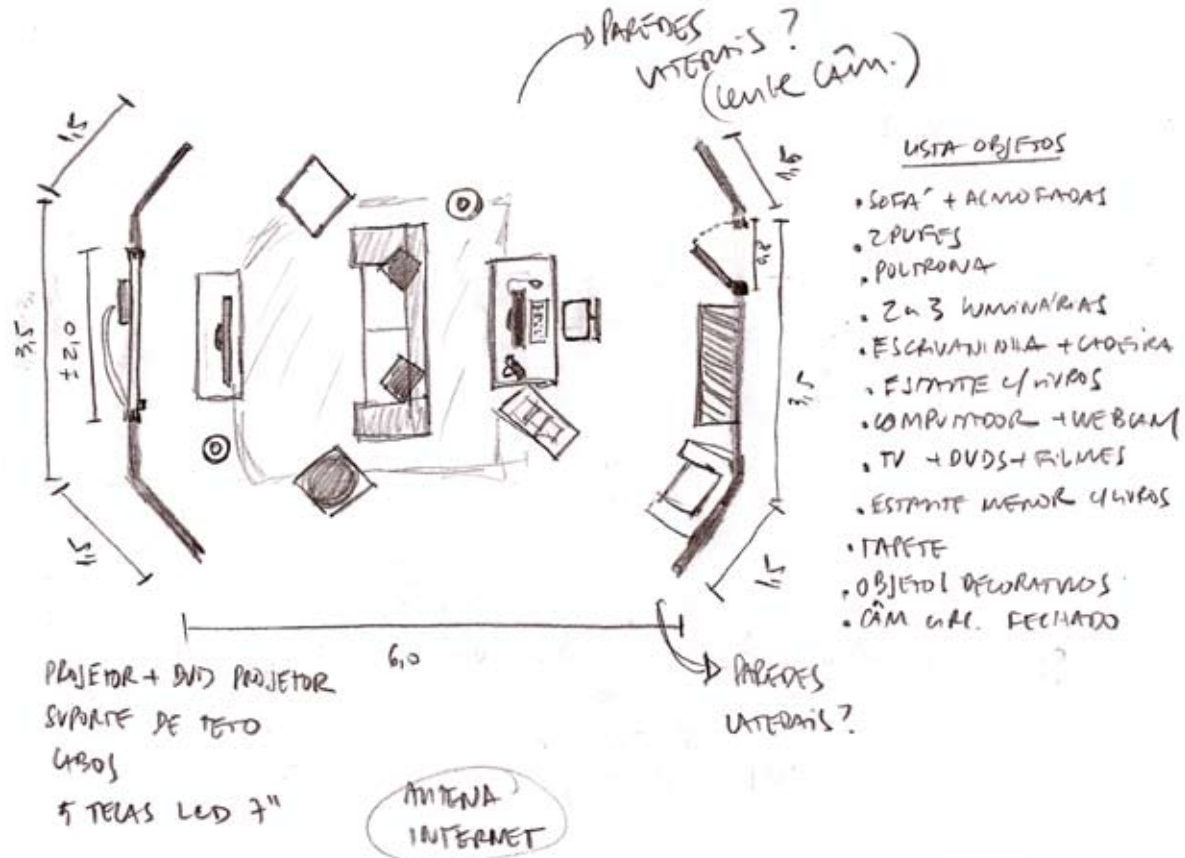 PAREDES
LATERAIS?
(lente câm.)
1,5
3,5
1,5
1,5
0,8
3,5
1,5
6,0
LISTA OBJETOS
• SOFÁ + ALMOFADAS
• 2 PUFES
• POLTRONA
• 2 a 3 LUMINÁRIAS
• ESCRIVANINHA + CADEIRA
• ESTANTE C/ LIVROS
• COMPUTADOR + WEBCAM
• TV + DVDS + FILMES
• ESTANTE MENOR C/ LIVROS
• TAPETE
• OBJETOS DECORATIVOS
• CÂM CIRC. FECHADO
PAREDES
LATERAIS?
PROJETOR + DVD PROJETOR
SUPORTE DE TETO
CABOS
5 TELAS LCD 7"
ANTENA
INTERNET